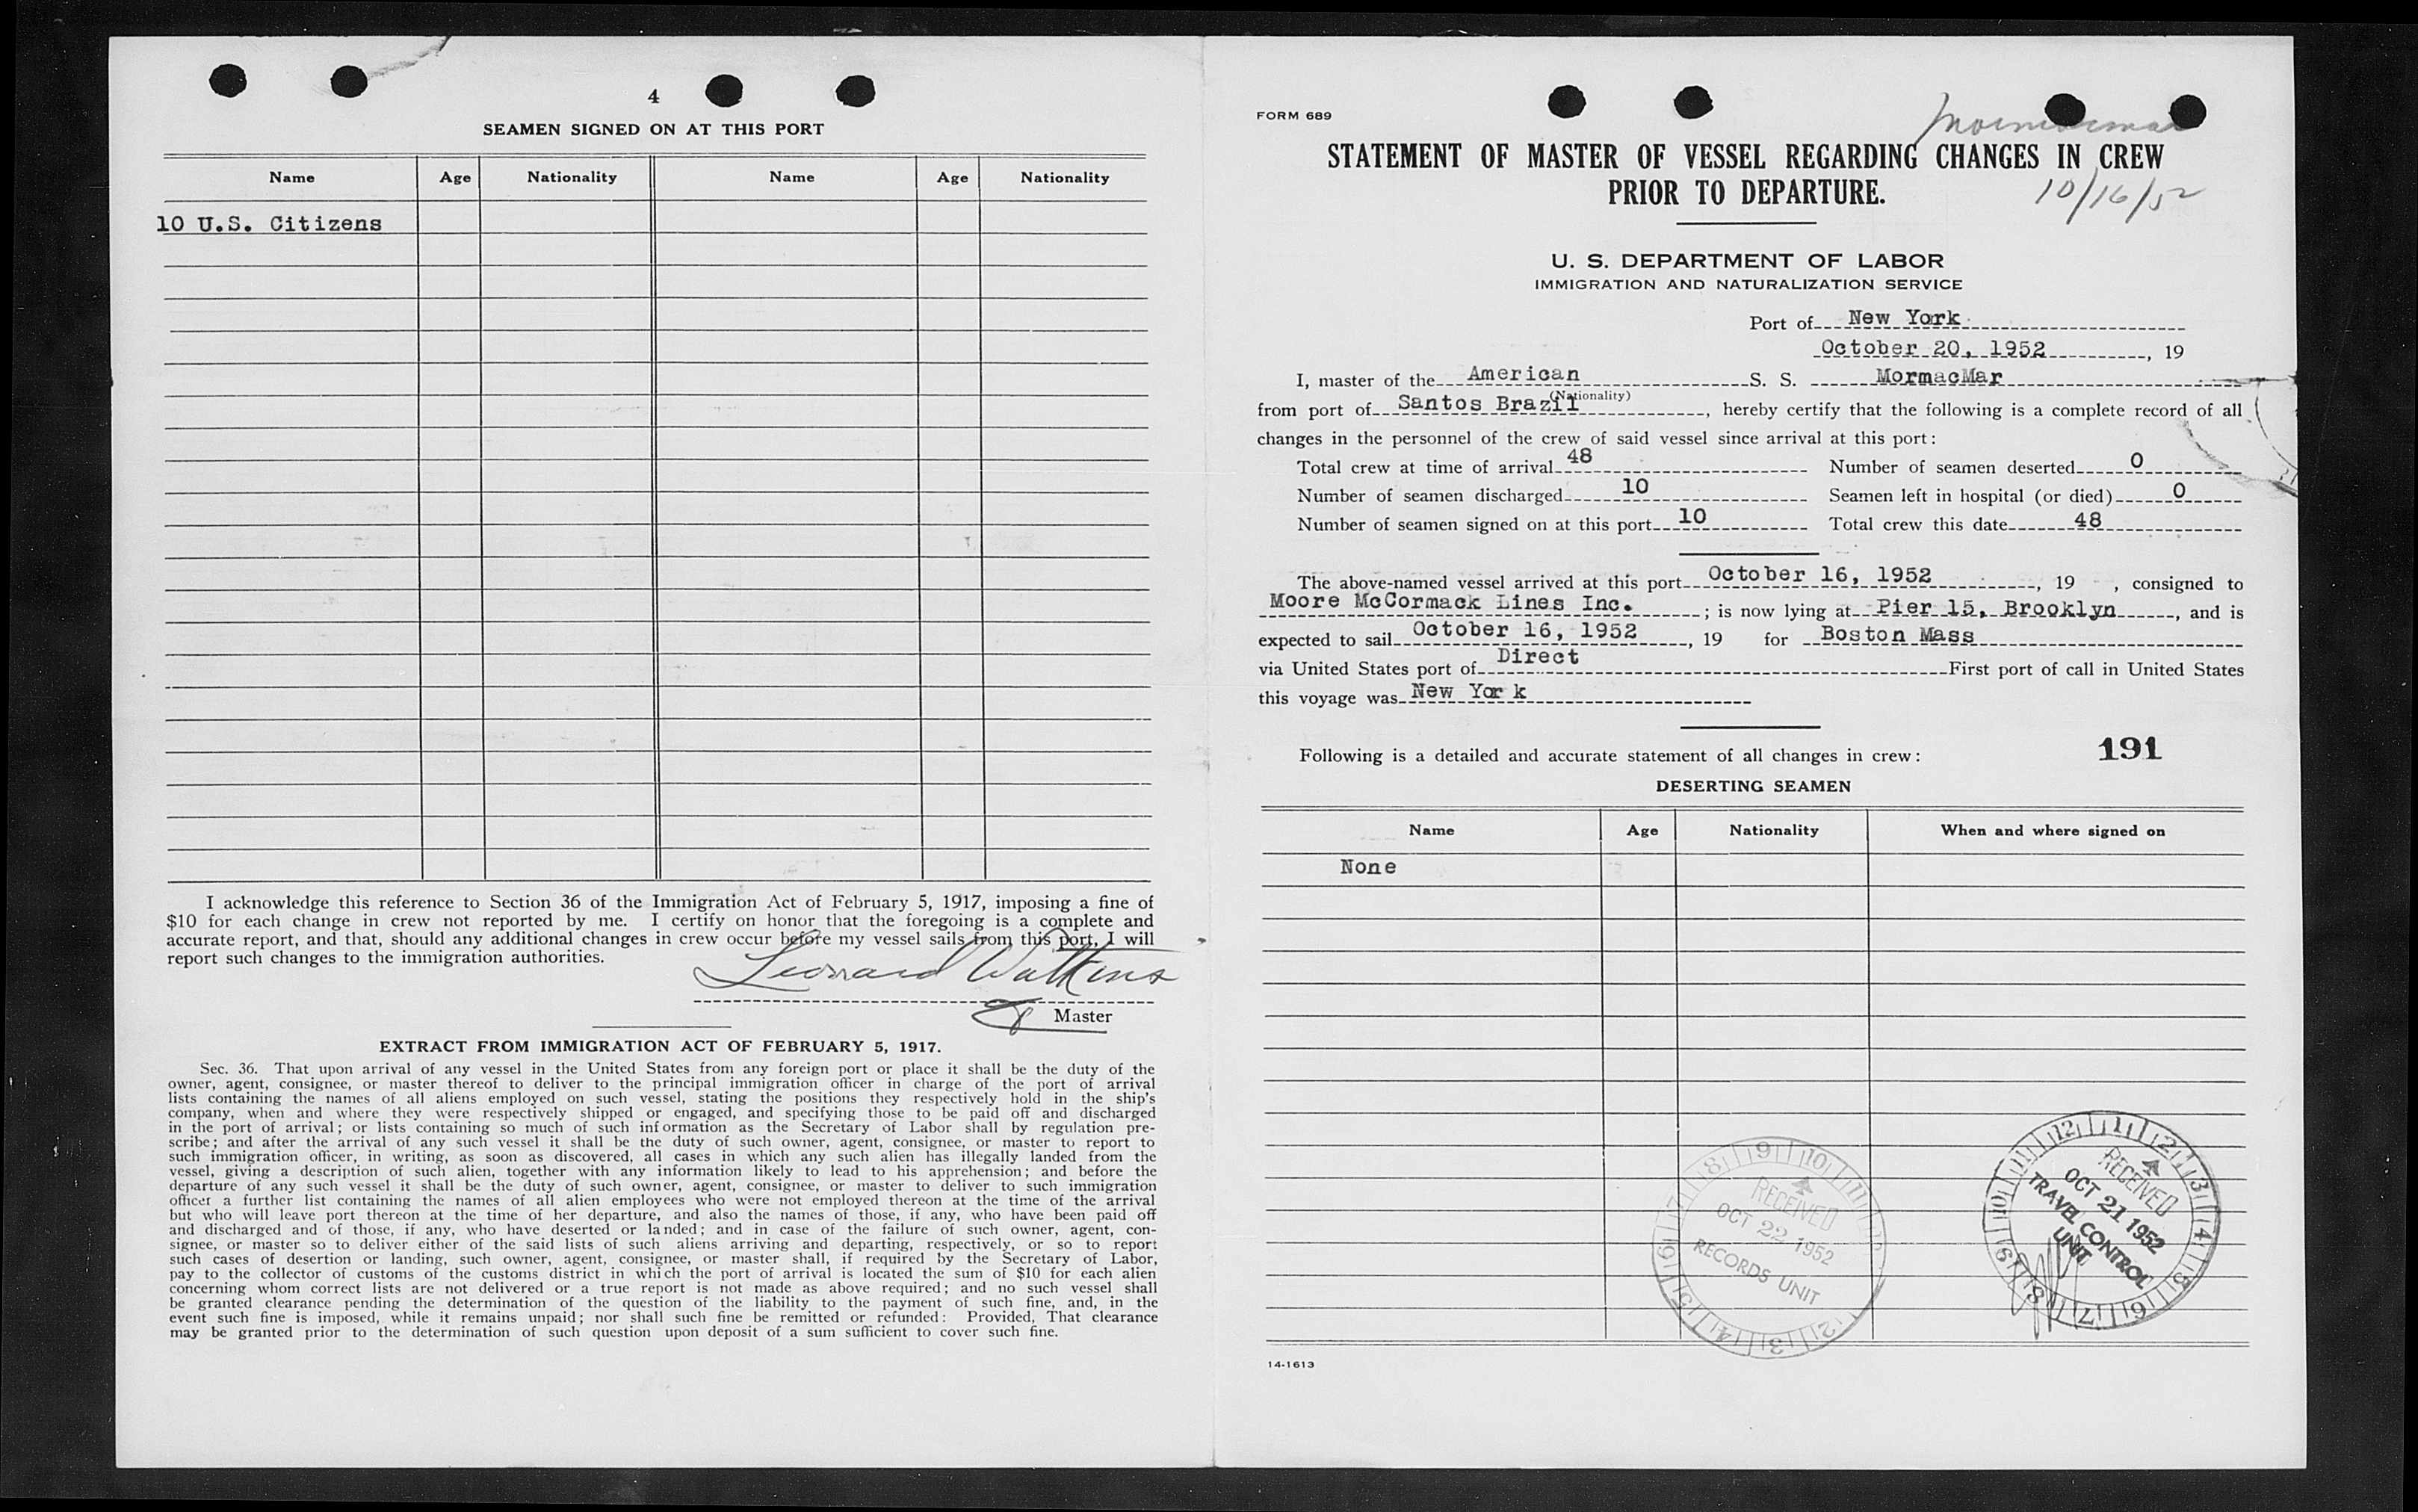 4
SEAMEN SIGNED ON AT THIS PORT
Name Age Nationality Name Age Nationality
10 U.S. Citizens
I acknowledge this reference to Section 36 of the Immigration Act of February 5, 1917, imposing a fine of
$10 for each change in crew not reported by me. I certify on honor that the foregoing is a complete and
accurate report, and that, should any additional changes in crew occur before my vessel sails from this port, I will
report such changes to the immigration authorities.
Leonard Watkins
Master
EXTRACT FROM IMMIGRATION ACT OF FEBRUARY 5, 1917.
Sec. 36. That upon arrival of any vessel in the United States from any foreign port or place it shall be the duty of the
owner, agent, consignee, or master thereof to deliver to the principal immigration officer in charge of the port of arrival
lists containing the names of all aliens employed on such vessel, stating the positions they respectively hold in the ship's
company, when and where they were respectively shipped or engaged, and specifying those to be paid off and discharged
in the port of arrival; or lists containing so much of such information as the Secretary of Labor shall by regulation pre-
scribe; and after the arrival of any such vessel it shall be the duty of such owner, agent, consignee, or master to report to
such immigration officer, in writing, as soon as discovered, all cases in which any such alien has illegally landed from the
vessel, giving a description of such alien, together with any information likely to lead to his apprehension; and before the
departure of any such vessel it shall be the duty of such owner, agent, consignee, or master to deliver to such immigration
officer a further list containing the names of all alien employees who were not employed thereon at the time of the arrival
but who will leave port thereon at the time of her departure, and also the names of those, if any, who have been paid off
and discharged and of those, if any, who have deserted or landed; and in case of the failure of such owner, agent, con-
signee, or master so to deliver either of the said lists of such aliens arriving and departing, respectively, or so to report
such cases of desertion or landing, such owner, agent, consignee, or master shall, if required by the Secretary of Labor,
pay to the collector of customs of the customs district in which the port of arrival is located the sum of $10 for each alien
concerning whom correct lists are not delivered or a true report is not made as above required; and no such vessel shall
be granted clearance pending the determination of the question of the liability to the payment of such fine, and, in the
event such fine is imposed, while it remains unpaid; nor shall such fine be remitted or refunded: Provided, That clearance
may be granted prior to the determination of such question upon deposit of a sum sufficient to cover such fine.
FORM 689
STATEMENT OF MASTER OF VESSEL REGARDING CHANGES IN CREW
PRIOR TO DEPARTURE.
10/16/52
U. S. DEPARTMENT OF LABOR
IMMIGRATION AND NATURALIZATION SERVICE
Port of New York
October 20, 1952, 19
I, master of the American S. S. MormacMar
(Nationality)
from port of Santos Brazil, hereby certify that the following is a complete record of all
changes in the personnel of the crew of said vessel since arrival at this port:
Total crew at time of arrival 48 Number of seamen deserted 0
Number of seamen discharged 10 Seamen left in hospital (or died) 0
Number of seamen signed on at this port 10 Total crew this date 48
The above-named vessel arrived at this port October 16, 1952, 19 , consigned to
Moore McCormack Lines Inc. ; is now lying at Pier 15, Brooklyn, and is
expected to sail October 16, 1952, 19 for Boston Mass
via United States port of Direct First port of call in United States
this voyage was New York
Following is a detailed and accurate statement of all changes in crew: 191
DESERTING SEAMEN
Name Age Nationality When and where signed on
None
RECEIVED
OCT 22 1952
RECORDS UNIT
RECEIVED
OCT 21 1952
TRAVEL CONTROL
UNIT
14-1613